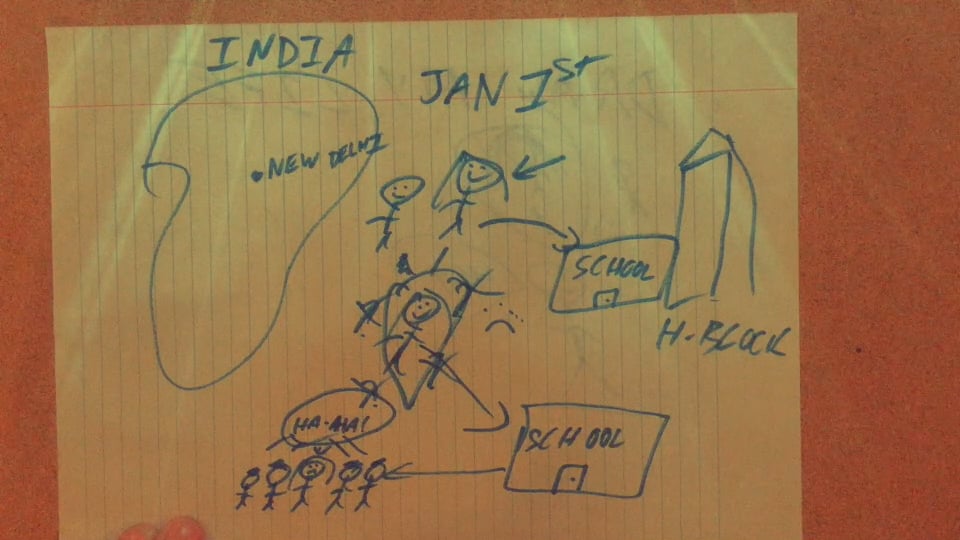 INDIA
JAN 1st
NEW DELHI
SCHOOL
H-BLOCK
HA-HA!
SCHOOL